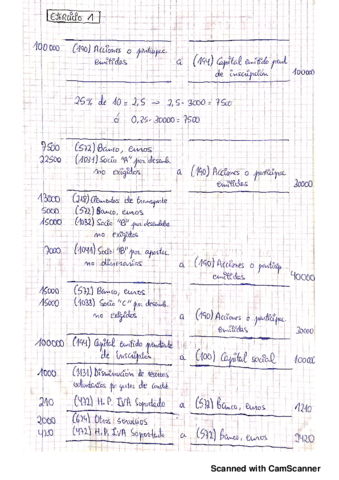 EJERCICIO 1
100000 (190) Acciones o particip. emitidas
a (194) Capital emitido pend. de inscripción 100000
25% de 10 = 2,5 → 2,5 · 3000 = 7500
ó 0,25 · 30000 = 7500
7500 (572) Banco, euros
22500 (1031) Socio "A" por desemb. no exigidos
a (190) Acciones o particip. emitidas 30000
13000 (218) Elementos de transporte
5000 (572) Banco, euros
15000 (1032) Socio "B" por desemb. no exigidos
7000 (1041) Socio "B" por aportac. no dinerarias
a (190) Acciones o particip. emitidas 40000
15000 (572) Banco, euros
15000 (1033) Socio "C" por desemb. no exigidos
a (190) Acciones o particip. emitidas 30000
100000 (194) Capital emitido pendiente de inscripción
a (100) Capital social 100000
1000 (1131) Disminución de reservas voluntarias por gastos de
210 (472) H.P. IVA Soportado a (572) Banco, euros 1210
2000 Otros servicios
420 (472) H.P. IVA Soportado a (572) Banco, euros 2420
Scanned with CamScanner